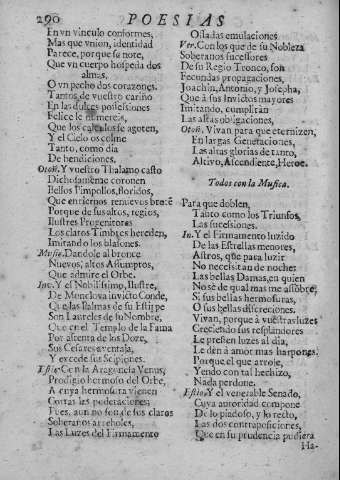 290 POESIAS
En vn vinculo conformes,
Mas que vnion, identidad
Parece, porque su note,
Que vn cuerpo hospeda dos
almas,
O vn pecho dos corazones.
Tantos de vuestro cariño
En las dulces possessiones
Felice le numereis,
Que los calculos se agoten,
Y el Cielo os colme
Tanto, como dia
De bendiciones.
Otoñ. Y vuestro Thalamo casto
Dichosamente coronen
Bellos Pimpollos, floridos,
Que entiernos renuevos broté
Porque de sus altos, regios,
Ilustres Progenitores
Los claros Timbres hereden,
Imitando los blasones.
Musie. Dandole al bronce
Nuevos, altos Assumptos,
Que admire el Orbe.
Inv. Y el Nobilissimo, Ilustre,
De Monclova invicto Conde,
Que las llamas de su Estirpe
Son Laureles de su Nombre,
Que en el Templo de la Fama
Por afrenta de los Doze,
Sus Cesares aventaja,
Y excede sus Scipiones.
Estio. Con la Aragancia Venus,
Prodigio hermoso del Orbe,
A cuya hermosura vienen
Cortas las ponderaciones;
Pues, aun no son de sus claros
Soberanos arreboles,
Las Luzes del Firmamento
Ossadas emulaciones.
Ver. Con los que de su Nobleza
Soberanos sucessores
De su Regio Tronco, son
Fecundas propagaciones,
Joachin, Antonio, y Josepha,
Que à sus Invictos mayores
Imitando, cumplirán
Las altas obligaciones,
Otoñ. Vivan para que eternizen,
En largas Generaciones,
Las altas glorias de tanto,
Altivo, Ascendiente, Heroe.
Todos con la Musica.
Para que doblen,
Tanto como los Triunfos,
Las sucessiones.
In. Y el Firmamento luzido
De las Estrellas menores,
Astros, que para luzir
No necesitan de noche:
Las bellas Damas, en quien
No sè de qual mas me assõbre,
Si sus bellas hermosuras,
O sus bellas discreciones.
Vivan, porque à vuestras luzes
Creciendo sus resplandores
Le presten luzes al dia,
Le den à amor mas harpones.
Porque el que arroje,
Yendo con tal hechizo,
Nada perdone.
Estio. Y el venerable Senado,
Cuya autoridad compone
De lo piadoso, y lo recto,
Las dos contraposiciones,
Que en su prudencia pudiera
Ha-